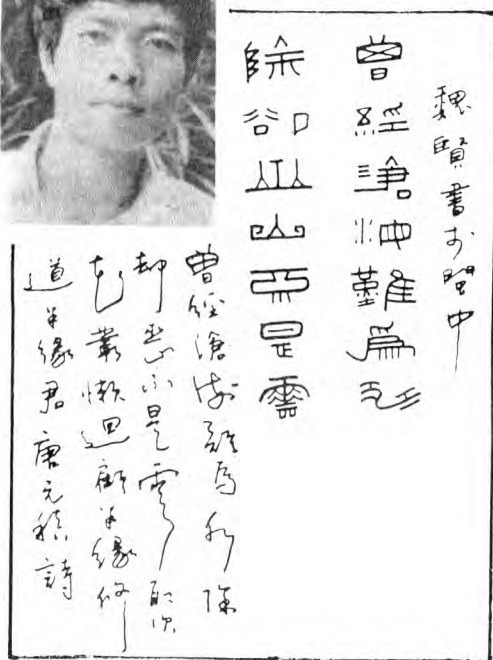 魏賢書於閩中
曾經滄海難爲水
除卻巫山不是雲
曾經滄海難為水除
却巫山不是雲取次
花叢懶迴顧半緣修
道半緣君唐元稹詩